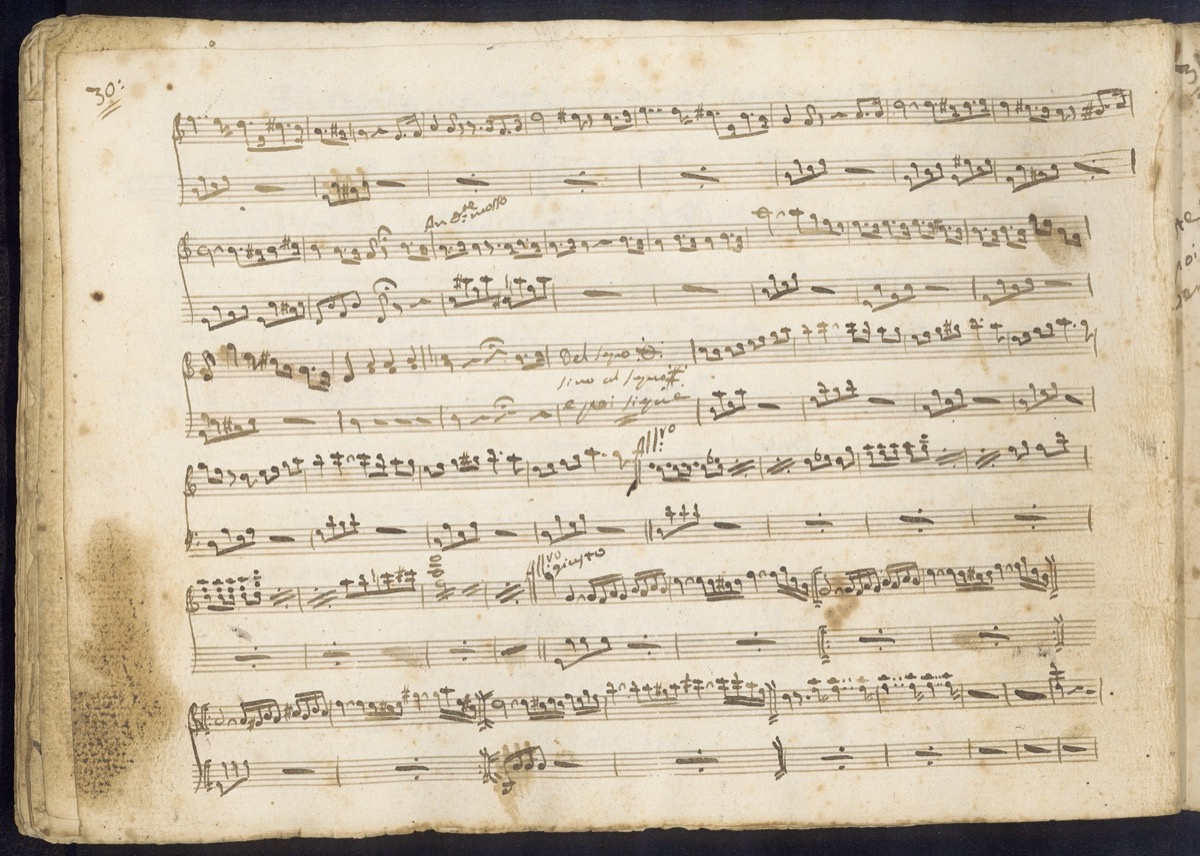 30:
And.te mosso
Del segno
sino al segno
e poi siegue
All.vo
All.vo giusto